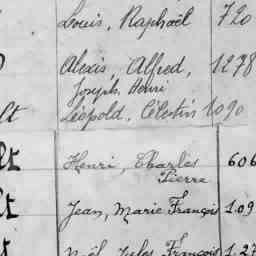 Louis, Raphaël 720
Alexis, Alfred, 1278
Joseph, Henri
lt Léopold, Célestin 1090
lt Henri, Charles 606
Pierre
lt Jean, Marie François 1.09
Noël, Jules François 1.27